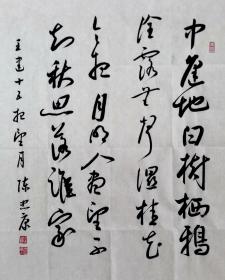 中庭地白树栖鸦
冷露无声湿桂花
今夜月明人尽望不
知秋思落谁家
王建十五夜望月 陈忠康